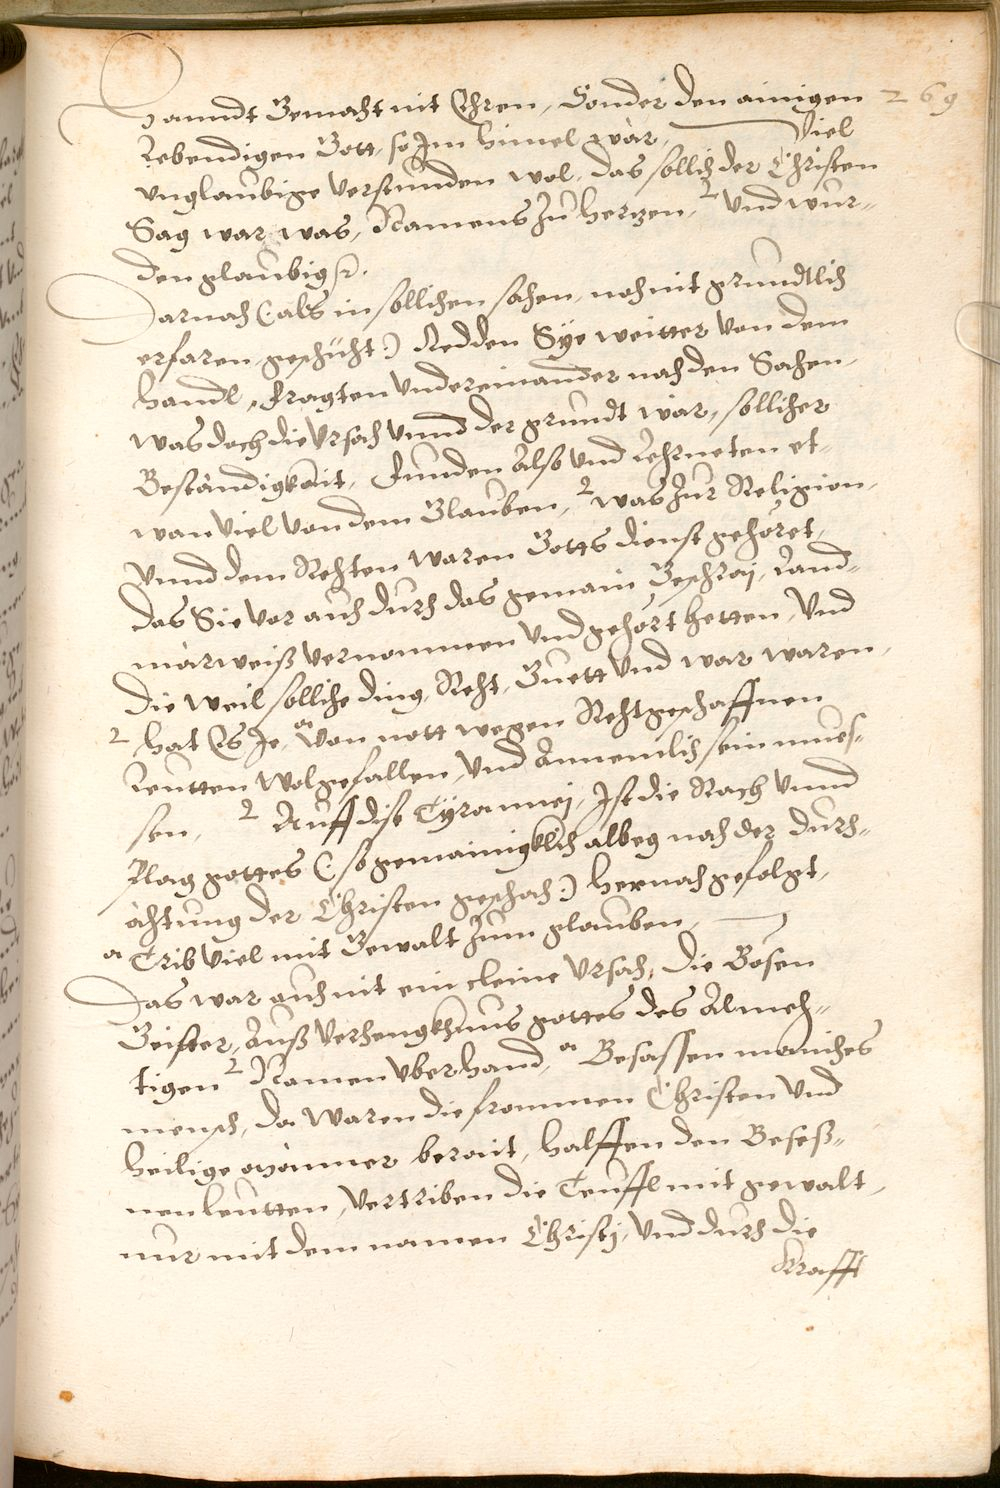 hanndt Gemacht nit Ehren, Sonder den ainigen 269
Lebendigen Gott, so Im himel wär, Viel
Unglaubige verstunden wol, das sollich der Christen
Sag war was, Namens zu hertzen, 2 Und wur-
den glaubig p.
Darnach (: als in sollichen sachen, noch nit grundtlich
erfaren, geschicht :) Redden Sÿe weitter von dem
handl, fragten Undereinander nach den Sachen,
was doch die Ursach Unnd der grundt wär, sollicher
Beständigkait, Funden Also Und Lehrneten et-
wan Viel von dem Glauben, 2 was zur Religion,
Unnd dem Rechten waren Gotts dienst gehöret,
das Sie vor auch durch das gemain Geschraÿ, Land-
märweiß vernommen Und gehört hetten, Und
die weil solliche ding, Recht, Guett Und war waren,
2 hat Es Je, a Von nott wegen Rechtgeschaffnen
Leutten Wolgefallen, Und Annemlich sein mues-
sen, 2 Auff dise Tÿranneÿ, Ist die Rach Unnd
Plag gottes (: so gemainigklich albeg nach der durch-
ächtung der Christen geschach :) hernach gefolgt,
a Trib Viel mit Gewalt zum glauben,
Das war auch nit ein cleine Ursach, die Bösen
Geister, Auß Verhengkhnus gottes des Almech-
tigen 2 Namen Uberhand, a Besassen maniches
mensch, da waren die frommen Christen Und
heilige männer berait, halffen den Beseß-
nen leutten, Vertriben die Teuffl mit gewalt,
nur mit dem namen Christj, Und durch die
Krafft